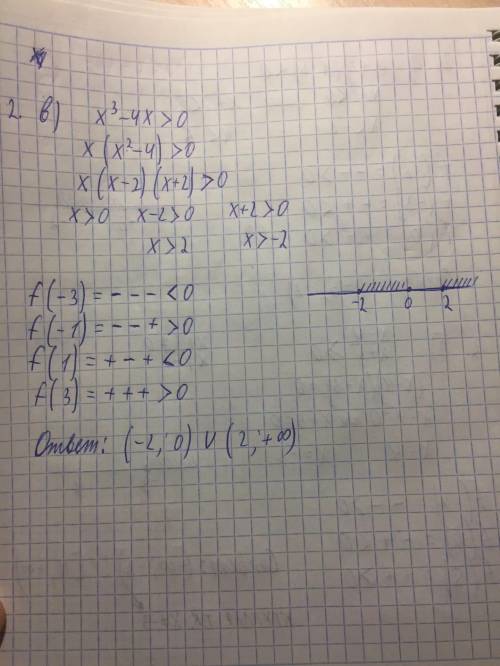 2. в) x³-4x>0
x(x²-4)>0
x(x-2)(x+2)>0
x>0 x-2>0 x+2>0
x>2 x>-2
f(-3)= - - - <0
f(-1)= - - + >0
f(1)= + - + <0
f(3)= + + + >0
-2 0 2
Ответ: (-2; 0) ∪ (2; +∞)